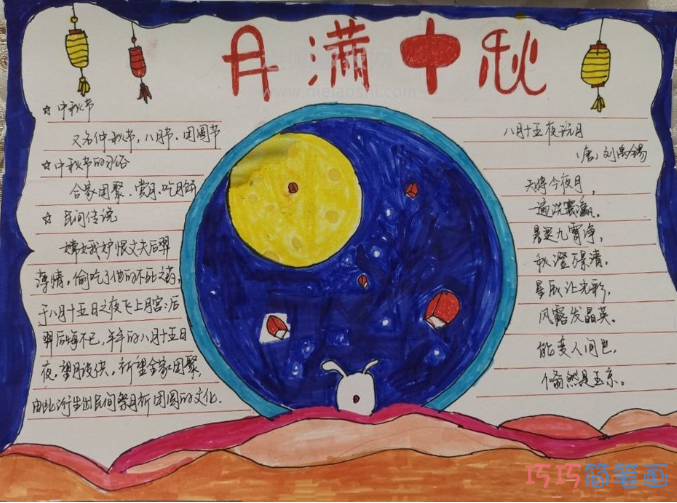 月满中秋
☆ 中秋节
又名仲秋节,八月节,团圆节
☆ 中秋节的习俗
合家团聚、赏月、吃月饼
☆ 民间传说
嫦娥妒恨丈夫后羿
薄情,偷吃了他的不死之药,
于八月十五日之夜飞上月宫;后
羿后悔不已,年年的八月十五日
夜,望月沉泱,祈望全家团聚,
由此衍生出民间祭月祈团圆的文化.
八月十五夜玩月
(唐)刘禹锡
天将今夜月,
一遍洗寰瀛。
暑退九霄净,
秋澄万景清。
星辰让光彩,
风露发晶英。
能变人间世,
翛然是玉京。
巧巧简笔画